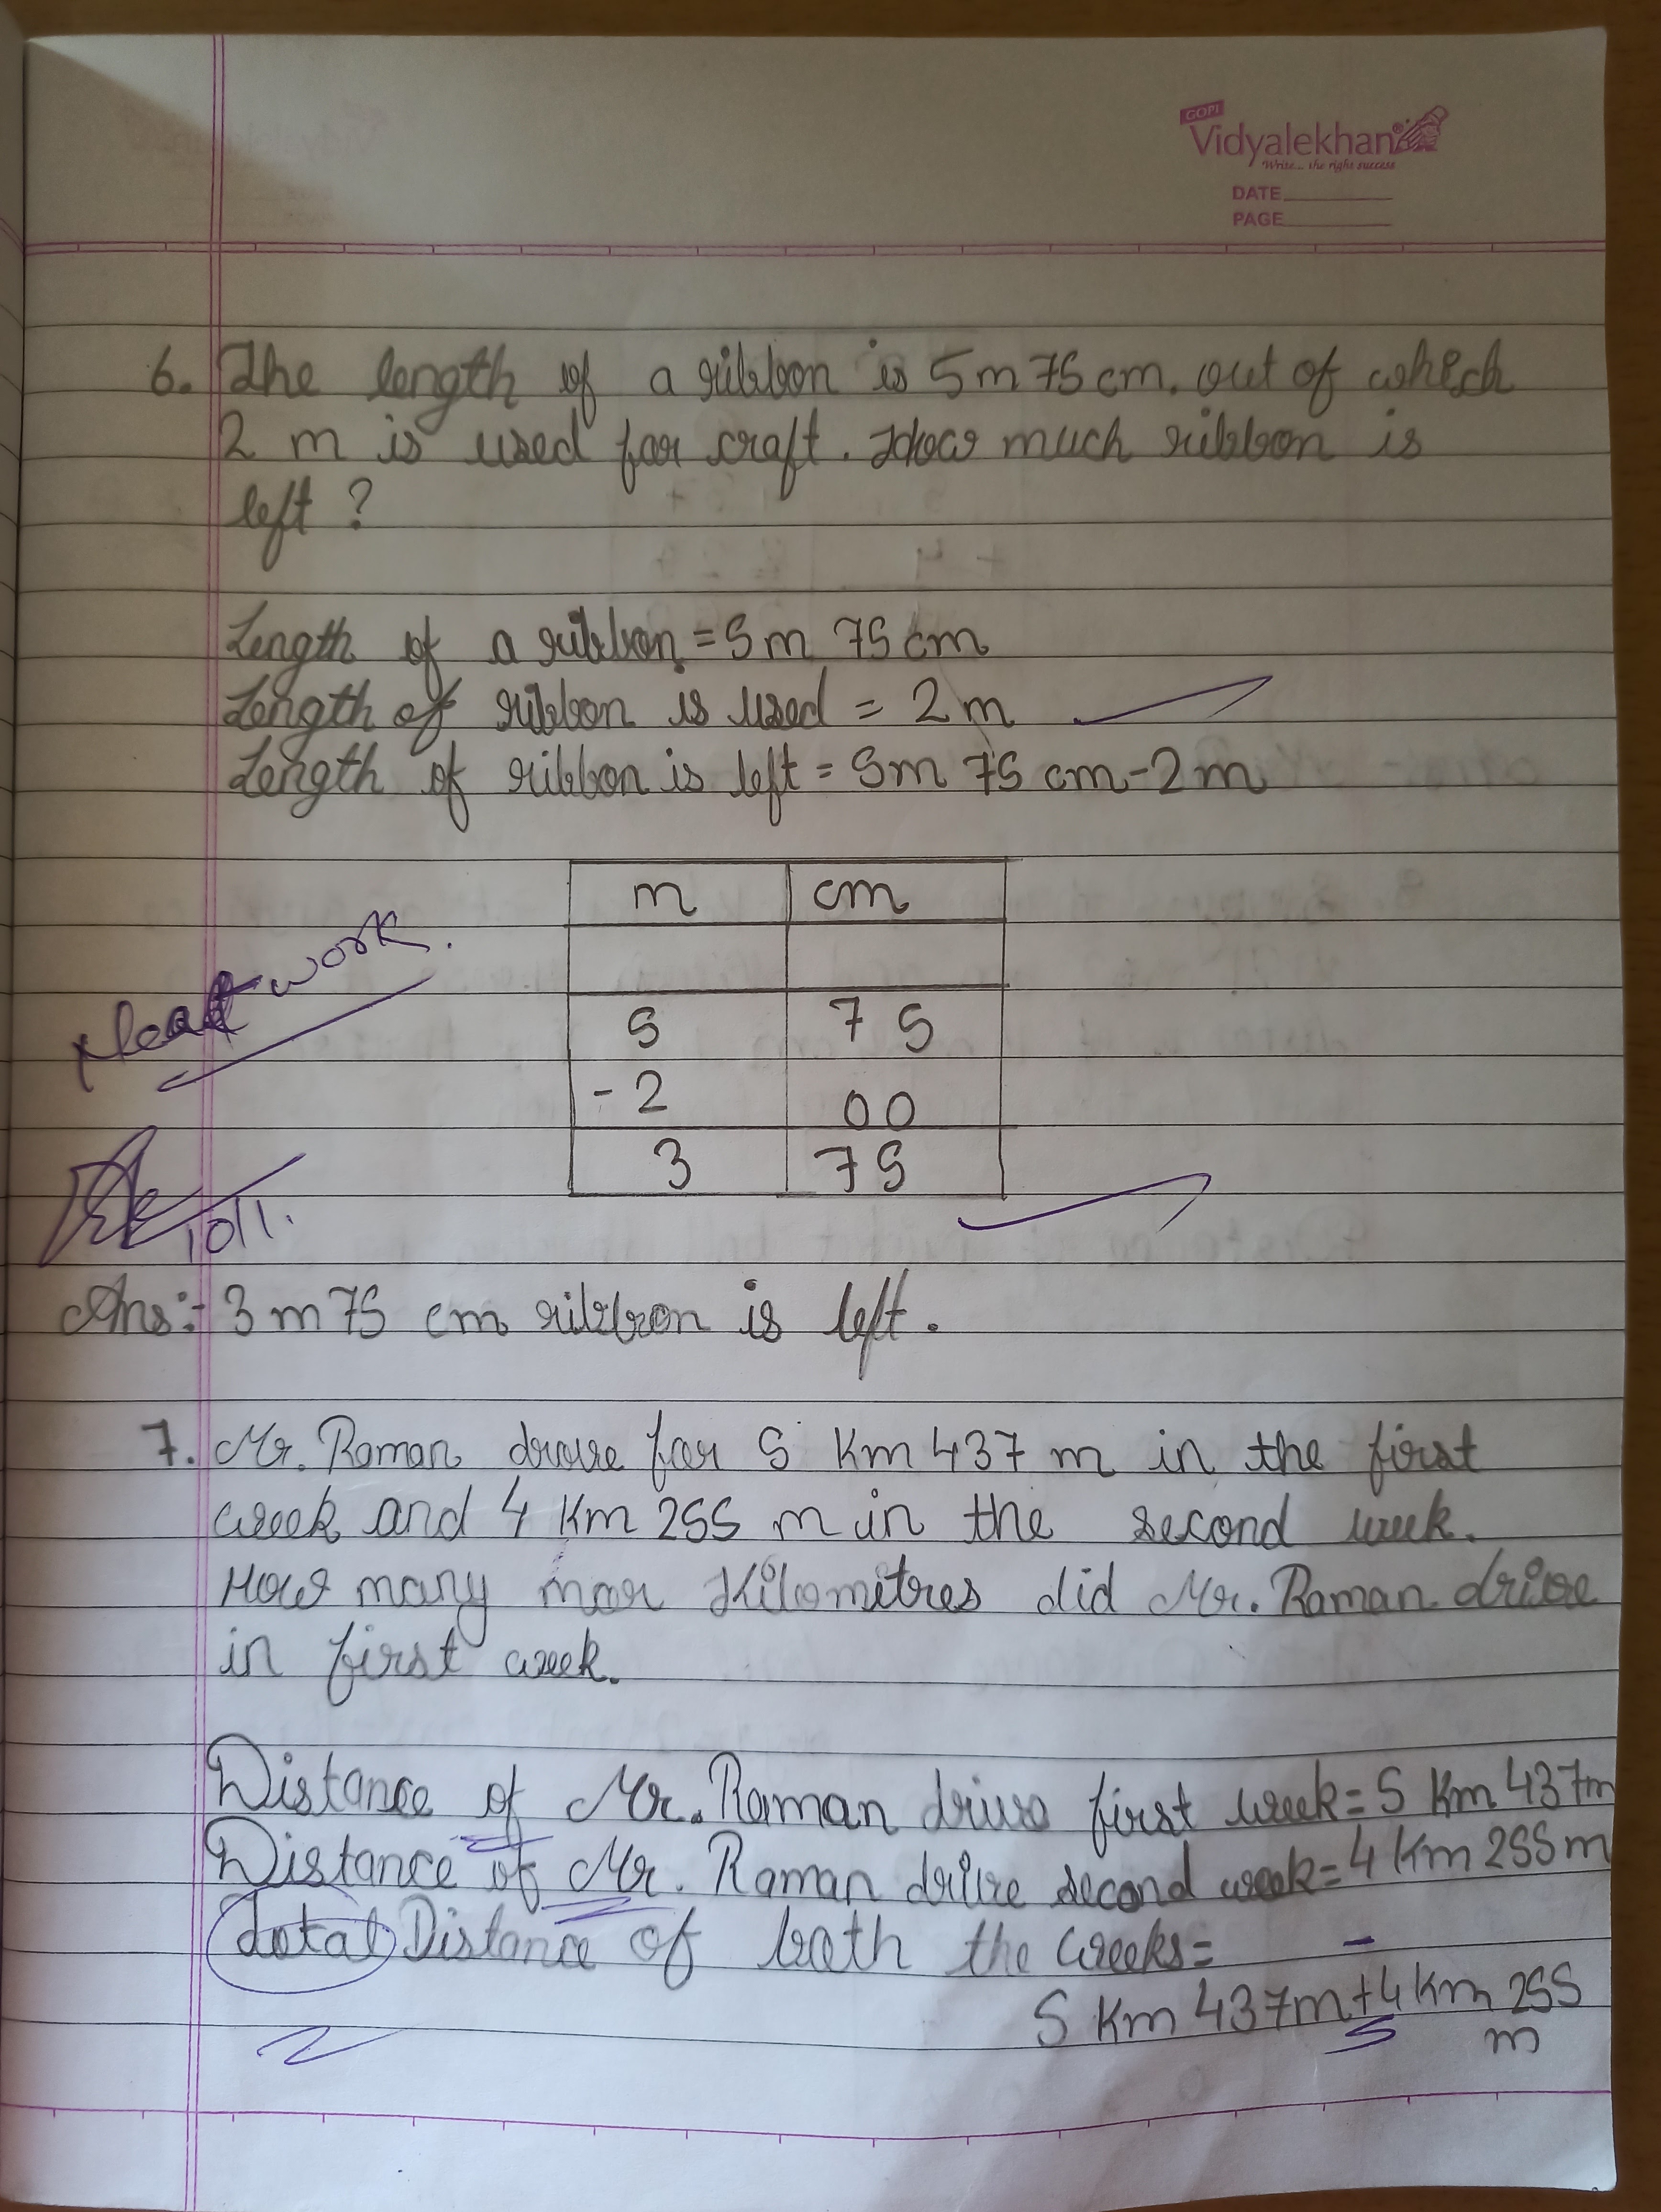 GOPI
Vidyalekhan
Write... the right success
DATE
PAGE
6. The length of a ribbon is 5m 75 cm. out of which
2 m is used for craft. How much ribbon is
left ?
Length of a ribbon = 5m 75 cm
Length of ribbon is used = 2 m
Length of ribbon is left = 5m 75 cm - 2 m
m cm
5 75
- 2 00
3 75
Neat work.
10/1.
Ans:- 3 m 75 cm ribbon is left.
7. Mr. Raman drove for 5 Km 437 m in the first
week and 4 Km 255 m in the second week.
How many mor Kilometres did Mr. Raman drive
in first week.
Distance of Mr. Raman first week = 5 Km 437m
Distance of Mr. Raman drive second week = 4 Km 255 m
Total Distance of both the weeks = -
5 Km 437m + 4 Km 255
m